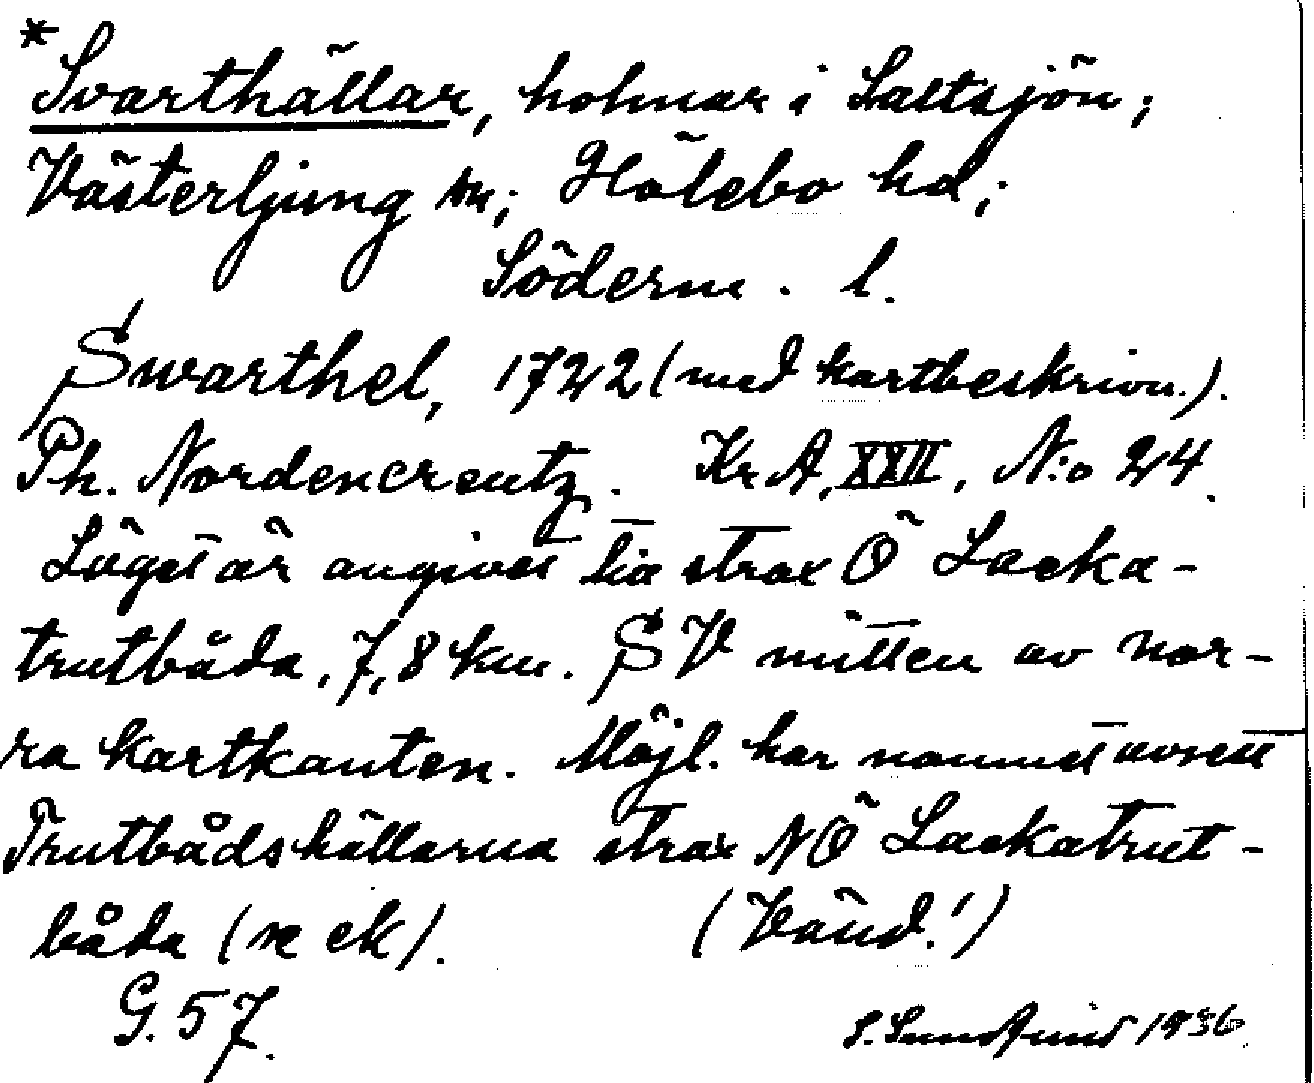 *
Svarthällar, holmar i Saltsjön;
Västerljung sn; Hölebo hd;
Söderm. l.
Swarthel, 1722 (med kartbeskrivn.).
Ph. Nordencreutz. Kr A, XXII, N:o 24.
Läget är angivet tia strax Ö Lacka-
trutbåda, 7,8 km. SV mitten av nor-
ra kartkanten. Möjl. har namnet avsett
Trutbådshällarna strax NÖ Lackatrut-
båda (n ek). (Vänd!)
G. 57.
S. 1936